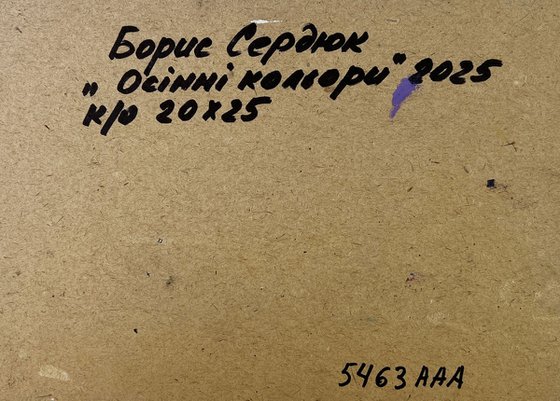 Борис Сердюк
„Осінні кольори" 2025
к/о 20x25
5463 AAA